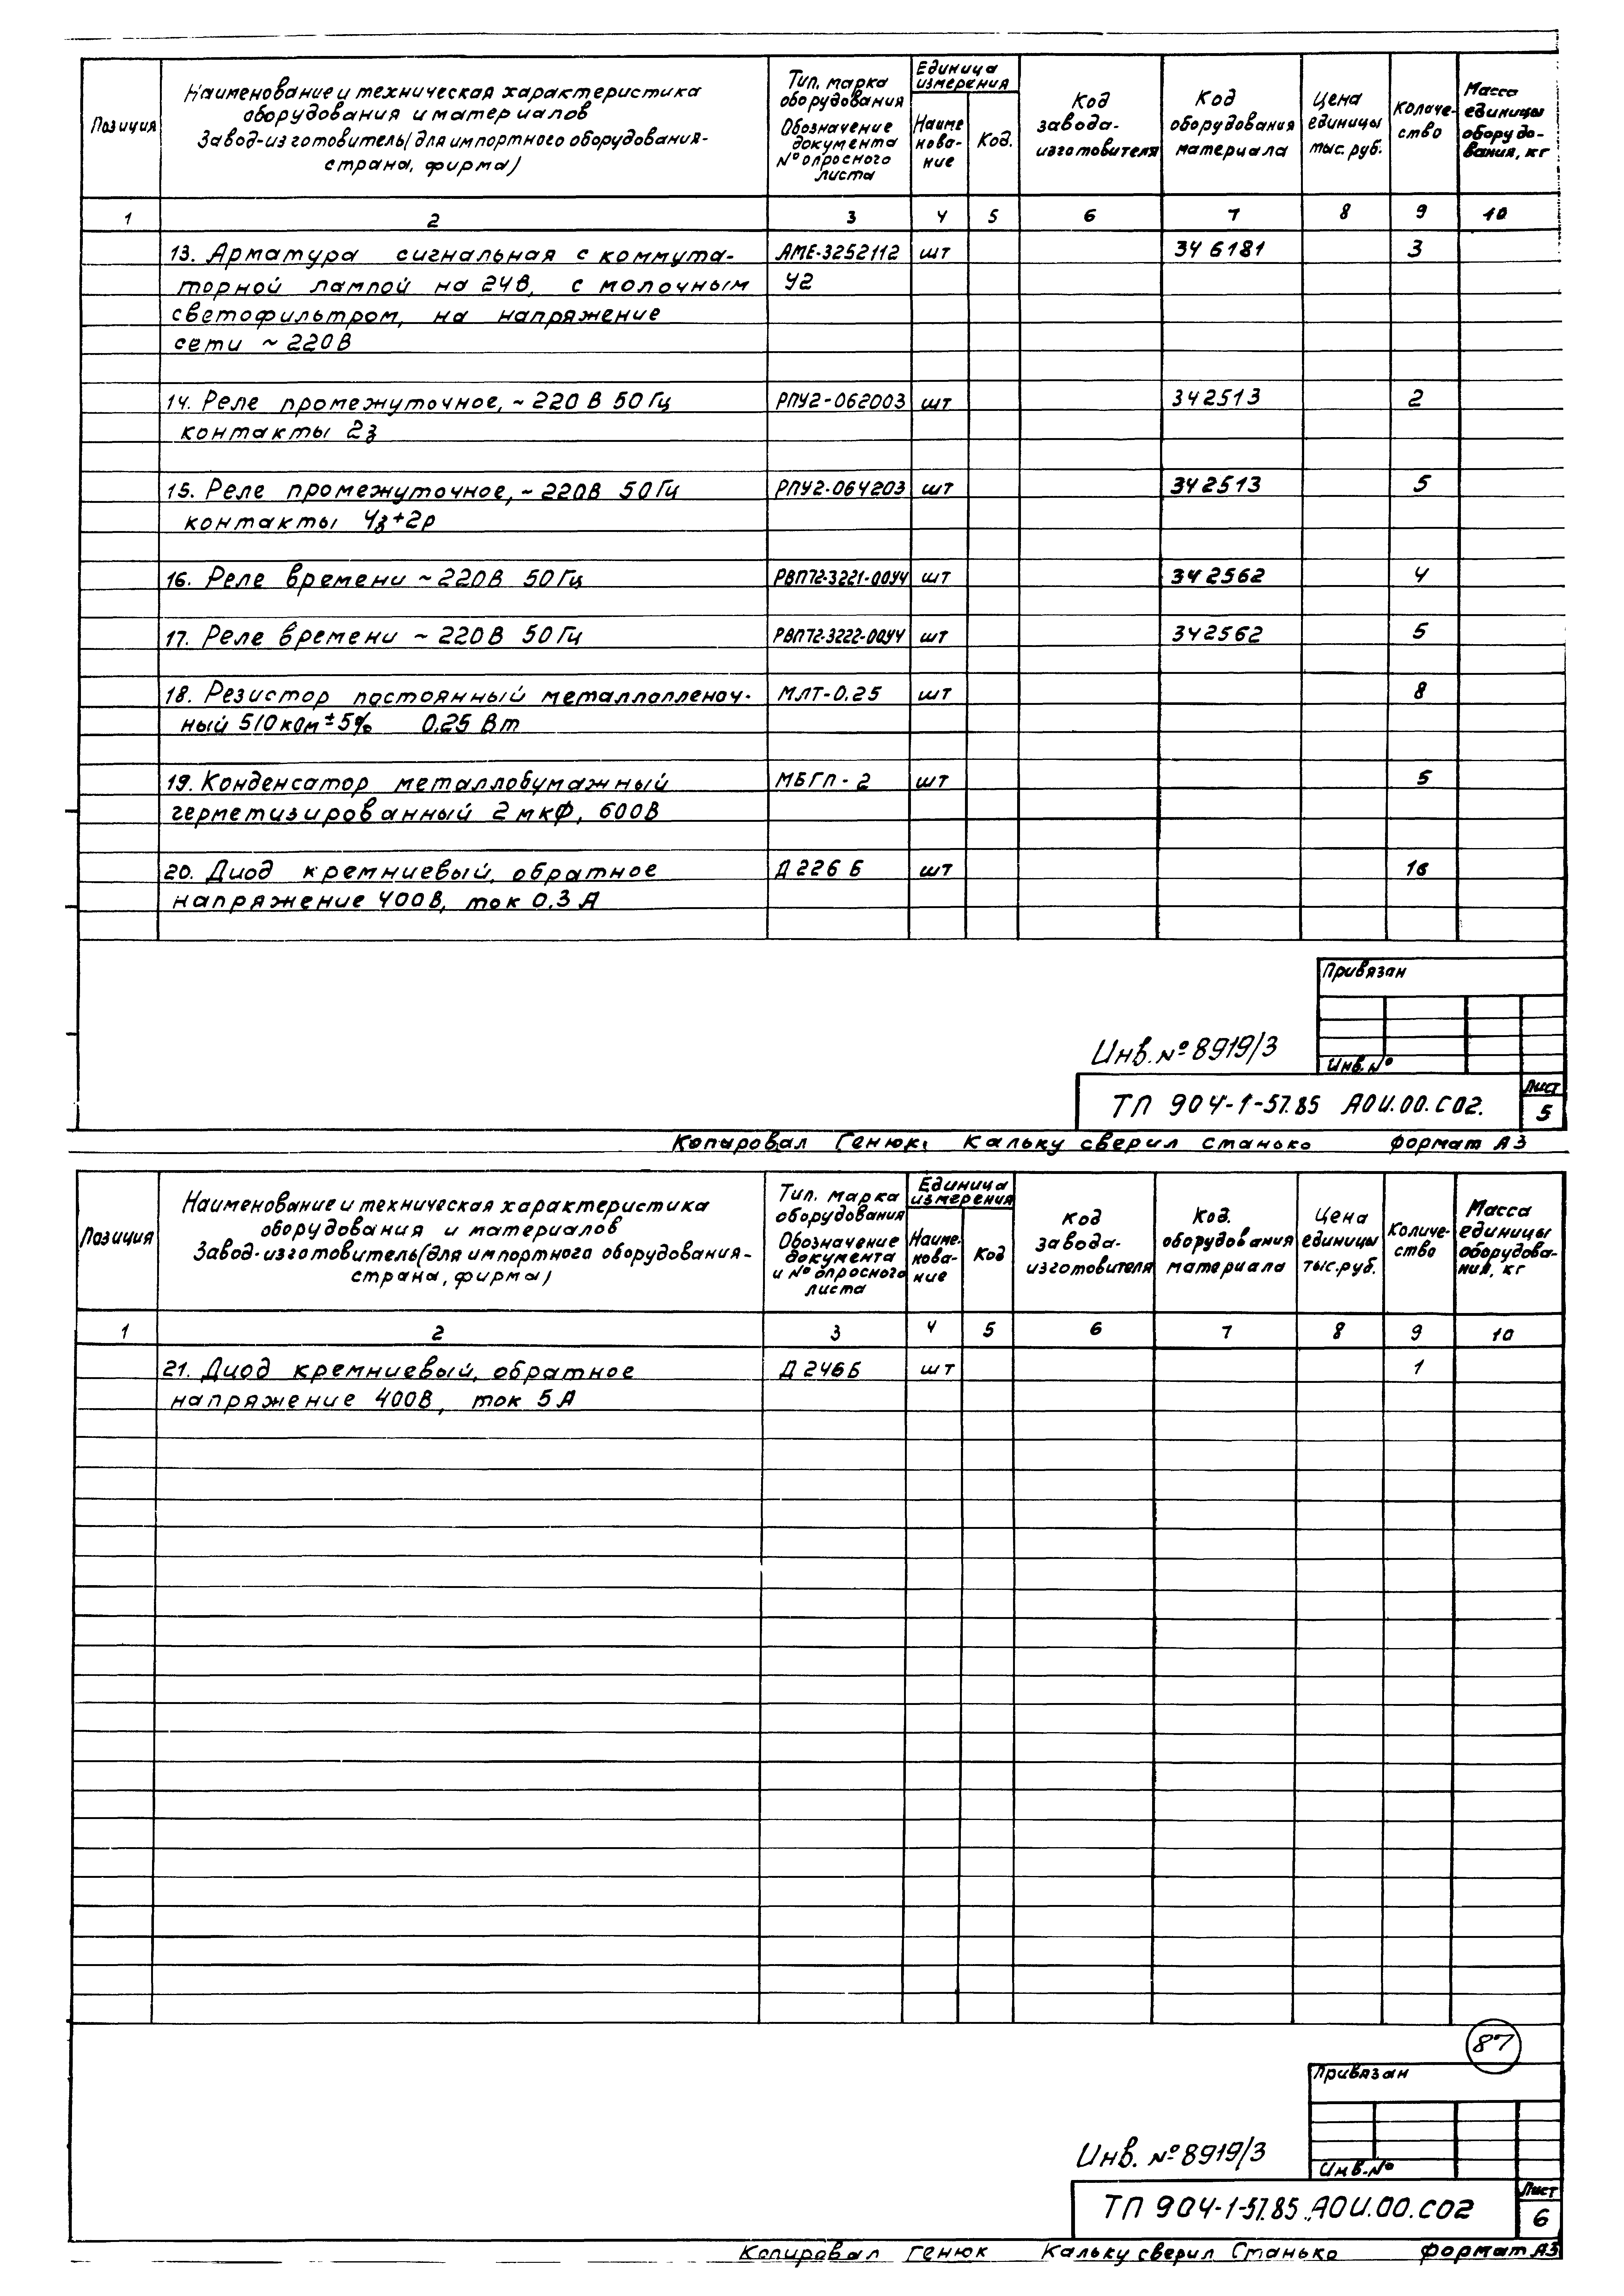 Позиция
Наименование и техническая характеристика
оборудования и материалов
Завод-изготовитель (для импортного оборудования-
страна, фирма)
Тип, марка
оборудования
Обозначение
документа
№ опросного
листа
Единица
измерения
Наиме
нова-
ние
Код.
Код
завода-
изготовителя
Код
оборудования
материала
Цена
единицы
тыс. руб.
Количе-
ство
Масса
единицы
оборудо-
вания, кг
1 2 3 4 5 6 7 8 9 10
13. Арматура сигнальная с коммута- АМЕ-3252112 шт 346181 3
торной лампой на 24В, с молочным У2
светофильтром, на напряжение
сети ~ 220В
14. Реле промежуточное, ~ 220 В 50 Гц РПУ2-062003 шт 342513 2
контакты 2з
15. Реле промежуточное, ~ 220В 50 Гц РПУ2-064203 шт 342513 5
контакты 4з+2р
16. Реле времени ~ 220В 50 Гц РВП72-3221-00У4 шт 342562 4
17. Реле времени ~ 220В 50 Гц РВП72-3222-00У4 шт 342562 5
18. Резистор постоянный металлопленоч- МЛТ-0,25 шт 8
ный 510 кОм ± 5% 0,25 Вт
19. Конденсатор металлобумажный МБГП-2 шт 5
герметизированный 2 мкФ, 600В
20. Диод кремниевый, обратное Д 226 Б шт 16
напряжение 400В, ток 0,3 А
Привязан
Инв. № 8919/3
Инв. №
ТП 904-1-57.85 АОИ.00.СО2.
Лист
5
Копировал Генюк: Кальку сверил Станько формат А3
Позиция
Наименование и техническая характеристика
оборудования и материалов
Завод-изготовитель (для импортного оборудования-
страна, фирма)
Тип, марка
оборудования
Обозначение
документа
и № опросного
листа
Единица
измерения
Наиме-
нова-
ние
Код
Код
завода-
изготовителя
Код.
оборудования
материала
Цена
единицы
тыс. руб.
Количе-
ство
Масса
единицы
оборудова-
ния, кг
1 2 3 4 5 6 7 8 9 10
21. Диод кремниевый, обратное Д 246Б шт 1
напряжение 400В, ток 5 А
87
Привязан
Инв. № 8919/3
Инв. №
ТП 904-1-57.85 .АОИ.00.СО2
Лист
6
Копировал Генюк Кальку сверил Станько формат А3